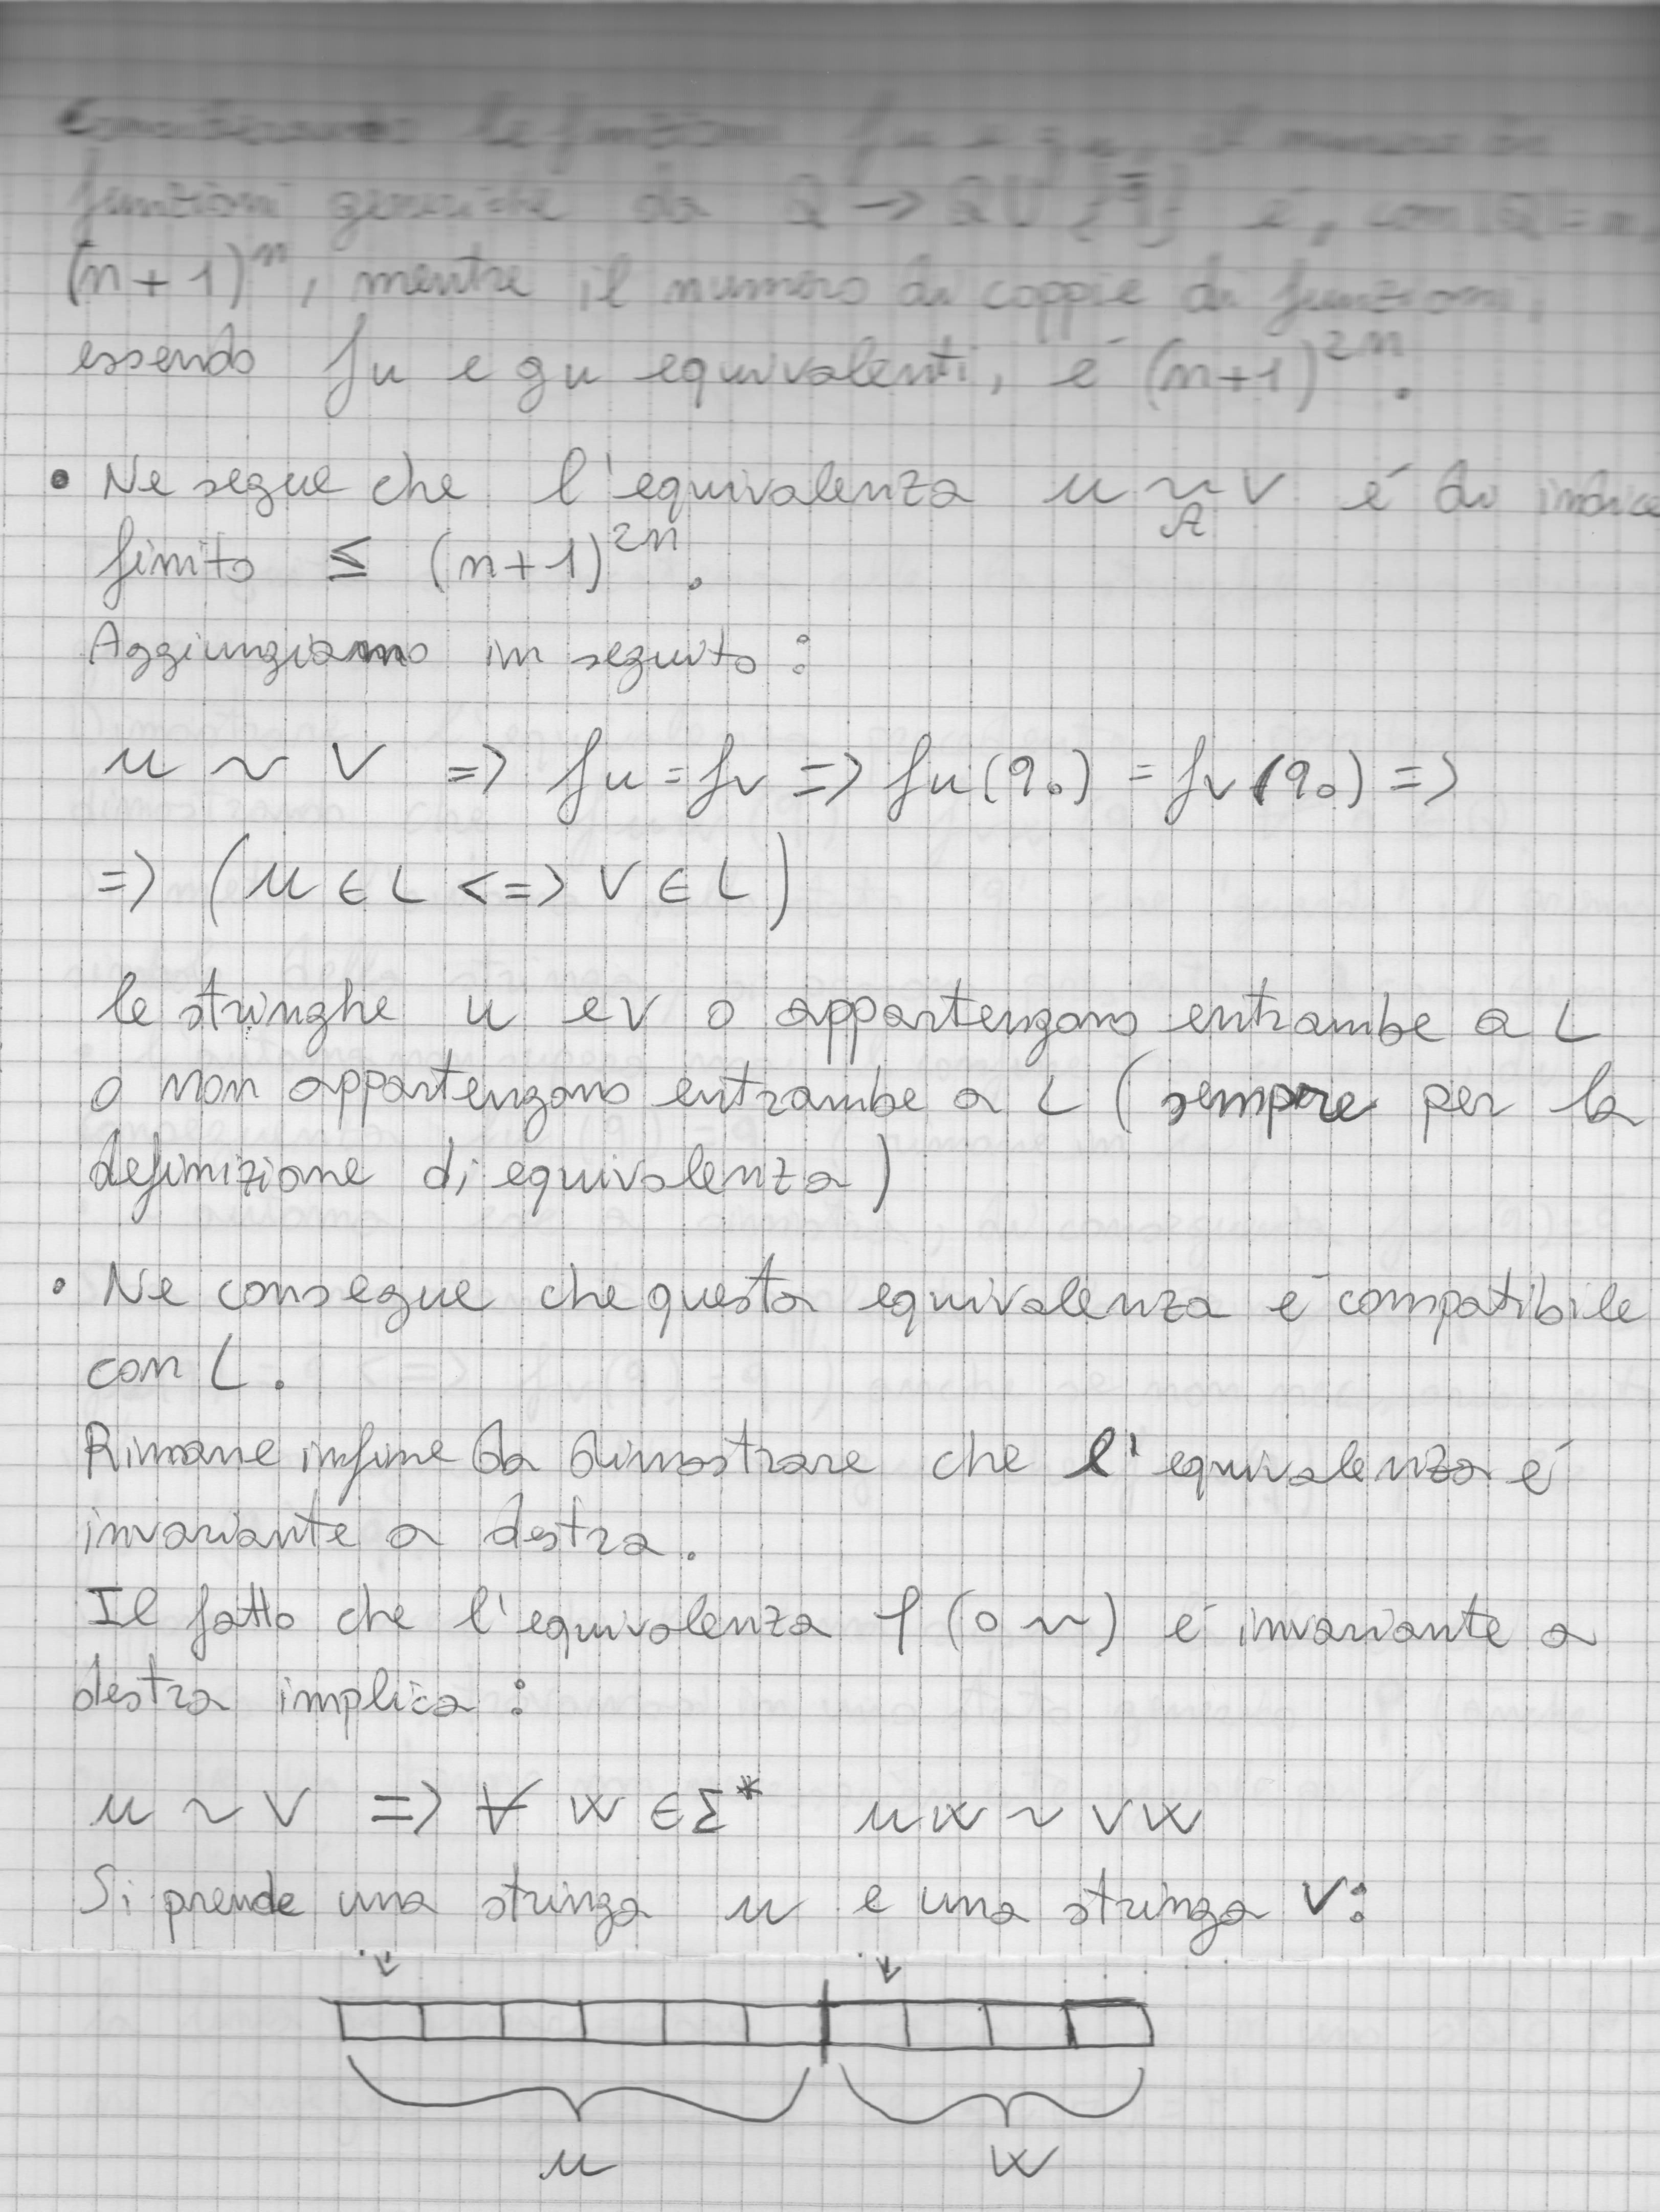 Consideriamo le funzioni fu e gu, il numero di
funzioni generiche da Q → Q∪{q̄} é, con |Q|=n,
(n+1)^n, mentre il numero di coppie di funzioni,
essendo fu e gu equivalenti, é (n+1)^2n.
• Ne segue che l'equivalenza u ~_A v é di indice
finito ≤ (n+1)^2n.
Aggiungiamo in seguito:
u ~ v => fu = fv => fu(q₀) = fv(q₀) =>
=> (u ∈ L <=> v ∈ L)
le stringhe u e v o appartengono entrambe a L
o non appartengono entrambe a L (sempre per la
definizione di equivalenza)
• Ne consegue che questa equivalenza é compatibile
con L.
Rimane infine da dimostrare che l'equivalenza é
invariante a destra.
Il fatto che l'equivalenza (o ~) é invariante a
destra implica:
u ~ v => ∀ w ∈ Σ* uw ~ vw
Si prende una stringa u e una stringa v:
u w